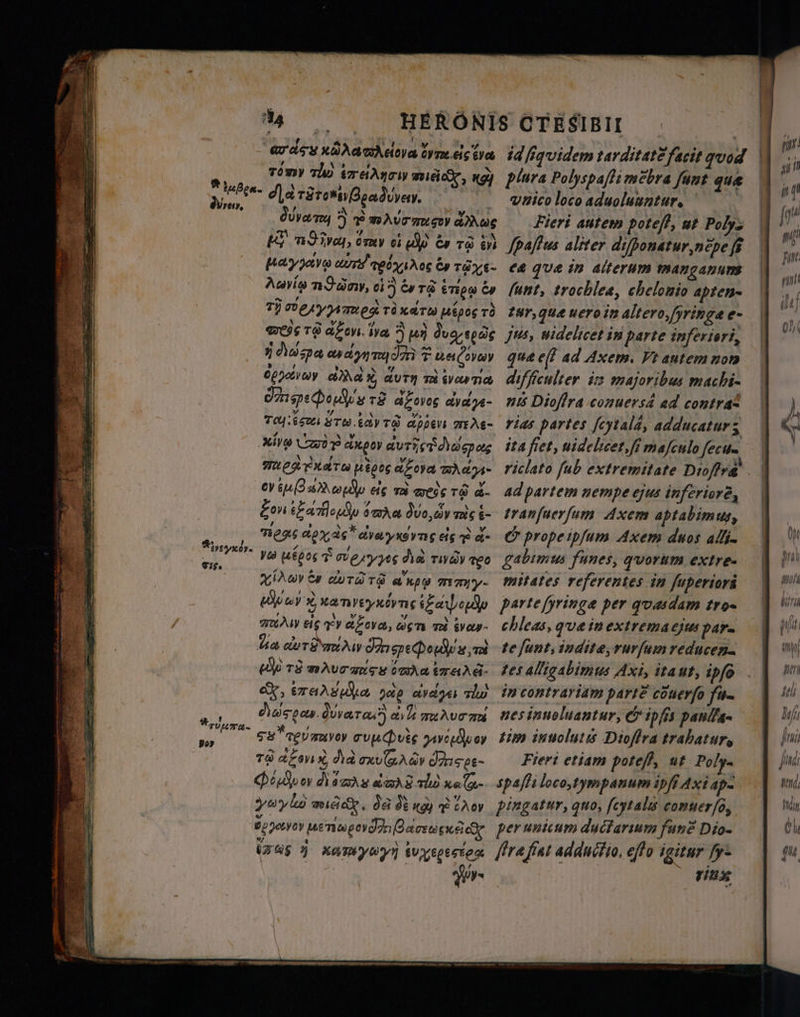 34 HERONIS CTESIBII
κῶλα πλείονα
τόπον τὴν ἐπείλησιν ποιεῖσθαι, καὶ
διὰ τοῦτο βραδύνειν.
δύναται δὲ τὸ πολύσπαστον ἄλλως
τεθῆναι, ὅταν οἱ μὲν ἐν τῷ ἑνὶ
μαγγάνῳ τρόχιλος ἐν τῷ χε-
λωνίῳ τεθῶσιν, οἱ δὲ ἐν τῷ ἑτέρῳ ἐν
τῇ κάτω μέρος τὸ
πρὸς τῷ ἄξονι. ἵνα δὲ μὴ δυσχερῶς
ἡ διώστρα ἀνάγηται ἐπὶ τῶν μειζόνων
ὀργάνων, ἀλλὰ καὶ αὕτη τὰ ἐναντία
ἐπιστρεφομένου τοῦ ἄξονος ἀνάγη-
ται, ἔσται οὕτω. ἐὰν τῷ ἄρρενι πελε-
κίνῳ ὑπὸ τὸ ἄκρον αὐτῆς τῆς διώστρας
κάτω μέρος ἄξονα πλάγι-
ον ἐμβάλλωμεν εἰς τὰ πρὸς τῷ ἄ-
ξονι ἐξάπτομεν ὅπλα δύο, ὧν τὰς ἑ-
τέρας ἀρχὰς *ἀναγκόντες εἰς τὸ ἄ-
νω μέρος τῆς σύριγγος διὰ τινῶν τρο-
χίλων ἐν αὐτῷ τῷ ἄκρῳ πεπηγ-
μένων καὶ κατενεγκόντες ἐξάψομεν
πάλιν εἰς τὸν ἄξονα, ὥστε τὰ ἐναν-
τία αὐτοῦ πάλιν ἐπιστρεφομένου, τὰ
μὲν τοῦ πολυσπάστου ὅπλα ἐπειλεῖ-
σθαι, ἐπειλούμενα γὰρ ἀνάγει τὴν
διώστραν. δύναται δὲ ἀντὶ πολυσπά-
στου *τρύπανον συμφυὲς γινόμενον
τῷ ἄξονι καὶ διὰ σκυταλῶν ἐπιστρε-
φόμενον δι' ὅπλου ἁπλοῦ τὴν κατα-
γωγὴν ποιεῖσθαι. δεῖ δὲ καὶ τὸ ὅλον
ὄργανον μετέωρον ἐπὶ βάσεως κεῖσθαι
ἡ καταγωγὴ εὐχερεστέρα
* ἐμβρα-
δύνειν,
* ἐνεγκόν-
τες.
* τύμπα-
νον
id siquidem tarditatē facit quod
plura Polyspasti mēbra sunt quæ
vnico loco aduoluuntur.
Fieri autem potest, ut Poly-
spastus aliter disponatur, nēpe si
ea quæ in alterum manganum
sunt, trochlea, chelonio apten-
tur, quæ uero in altero, syringa e-
jus, uidelicet in parte inferiori,
quæ est ad Axem. Vt autem non
difficulter in majoribus machi-
nis Diostra conuersâ ad contra-
rias partes scytalâ, adducatur;
ita fiet, uidelicet, si masculo secu-
riclato sub extremitate Diostræ
ad partem nempe ejus inferiorē,
transuersum Axem aptabimus,
& prope ipsum Axem duos alli-
gabimus funes, quorum extre-
mitates referentes in superiorē
parte syringæ per quasdam tro-
chleas, quæ in extrema ejus par-
te sunt, indita, rursum reducen-
tes alligabimus Axi, ita ut, ipso
in contrariam partē cōuerso fu-
nes inuoluantur, & ipsis paula-
tim inuolutis Diostra trahatur.
Fieri etiam potest, ut Poly-
spasti loco, tympanum ipsi Axi ap-
pingatur, quo, scytalis conuerso,
per unicum ductarium funē Dio-
stræ fiat adductio, esto igitur sy-
ring